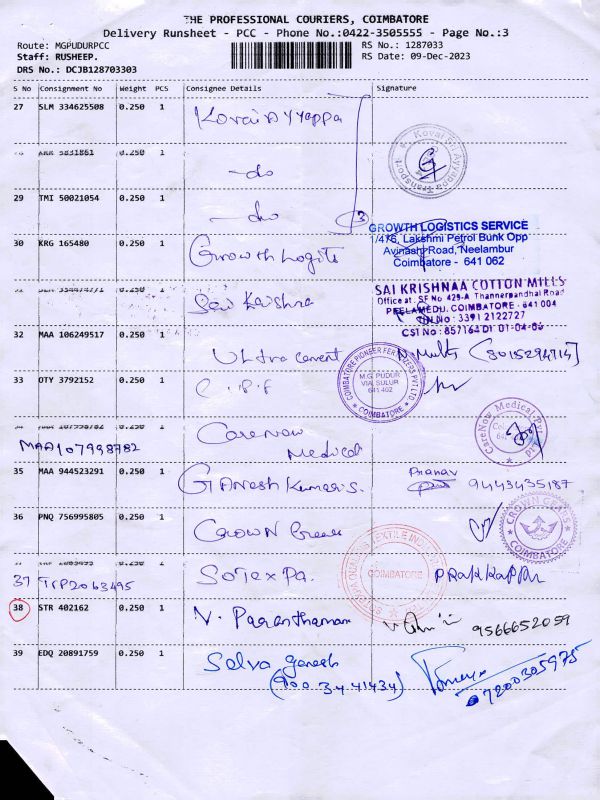 THE PROFESSIONAL COURIERS, COIMBATORE
Delivery Runsheet - PCC - Phone No.:0422-3505555 - Page No.:3
Route: MGPUDURPCC
RS No.: 1287033
Staff: RUSHEEP.
RS Date: 09-Dec-2023
DRS No.: DCJB128703303
S No Consignment No Weight PCS Consignee Details Signature
27 SLM 334625508 0.250 1 Kovai Ayyappa
Kovai Sri Ayyappa Transport
5831861 0.250 1 -do
29 TMI 50021054 0.250 1 -do 3
GROWTH LOGISTICS SERVICE
1/476, Lakshmi Petrol Bunk Opp
Avinashi Road, Neelambur
Coimbatore - 641 062
30 KRG 165480 0.250 1 Growth Logits
0.250 1 Sai Krishna
SAI KRISHNAA COTTON MILLS
Office at: SF No 429-A Thannerpandhal Road
PEELAMEDU, COIMBATORE - 641 004
CST No: 857164 Dt 01-04-06
32 MAA 106249517 0.250 1 Ultra cement
33 OTY 3792152 0.250 1 C.P.F
COIMBATORE PIONEER FERTILIZERS PVT LTD
M.G. PUDUR
VIA. SULUR
641 402
COIMBATORE
0.250 1 CareNow Medical
MAA107998782
CareNow Medical Pvt Ltd
35 MAA 944523291 0.250 1 Ganesh Kumar.S. Pranav 9443435187
36 PNQ 756995805 0.250 1 Crown Grees
CROWN GEARS
COIMBATORE
0.250 1 Sotexpa.
37 TRP2063495
COIMBATORE
38 STR 402162 0.250 1 V. Paranthaman 9566652059
39 EDQ 20891759 0.250 1 Selva ganesh
(900 3441434)
07200305975